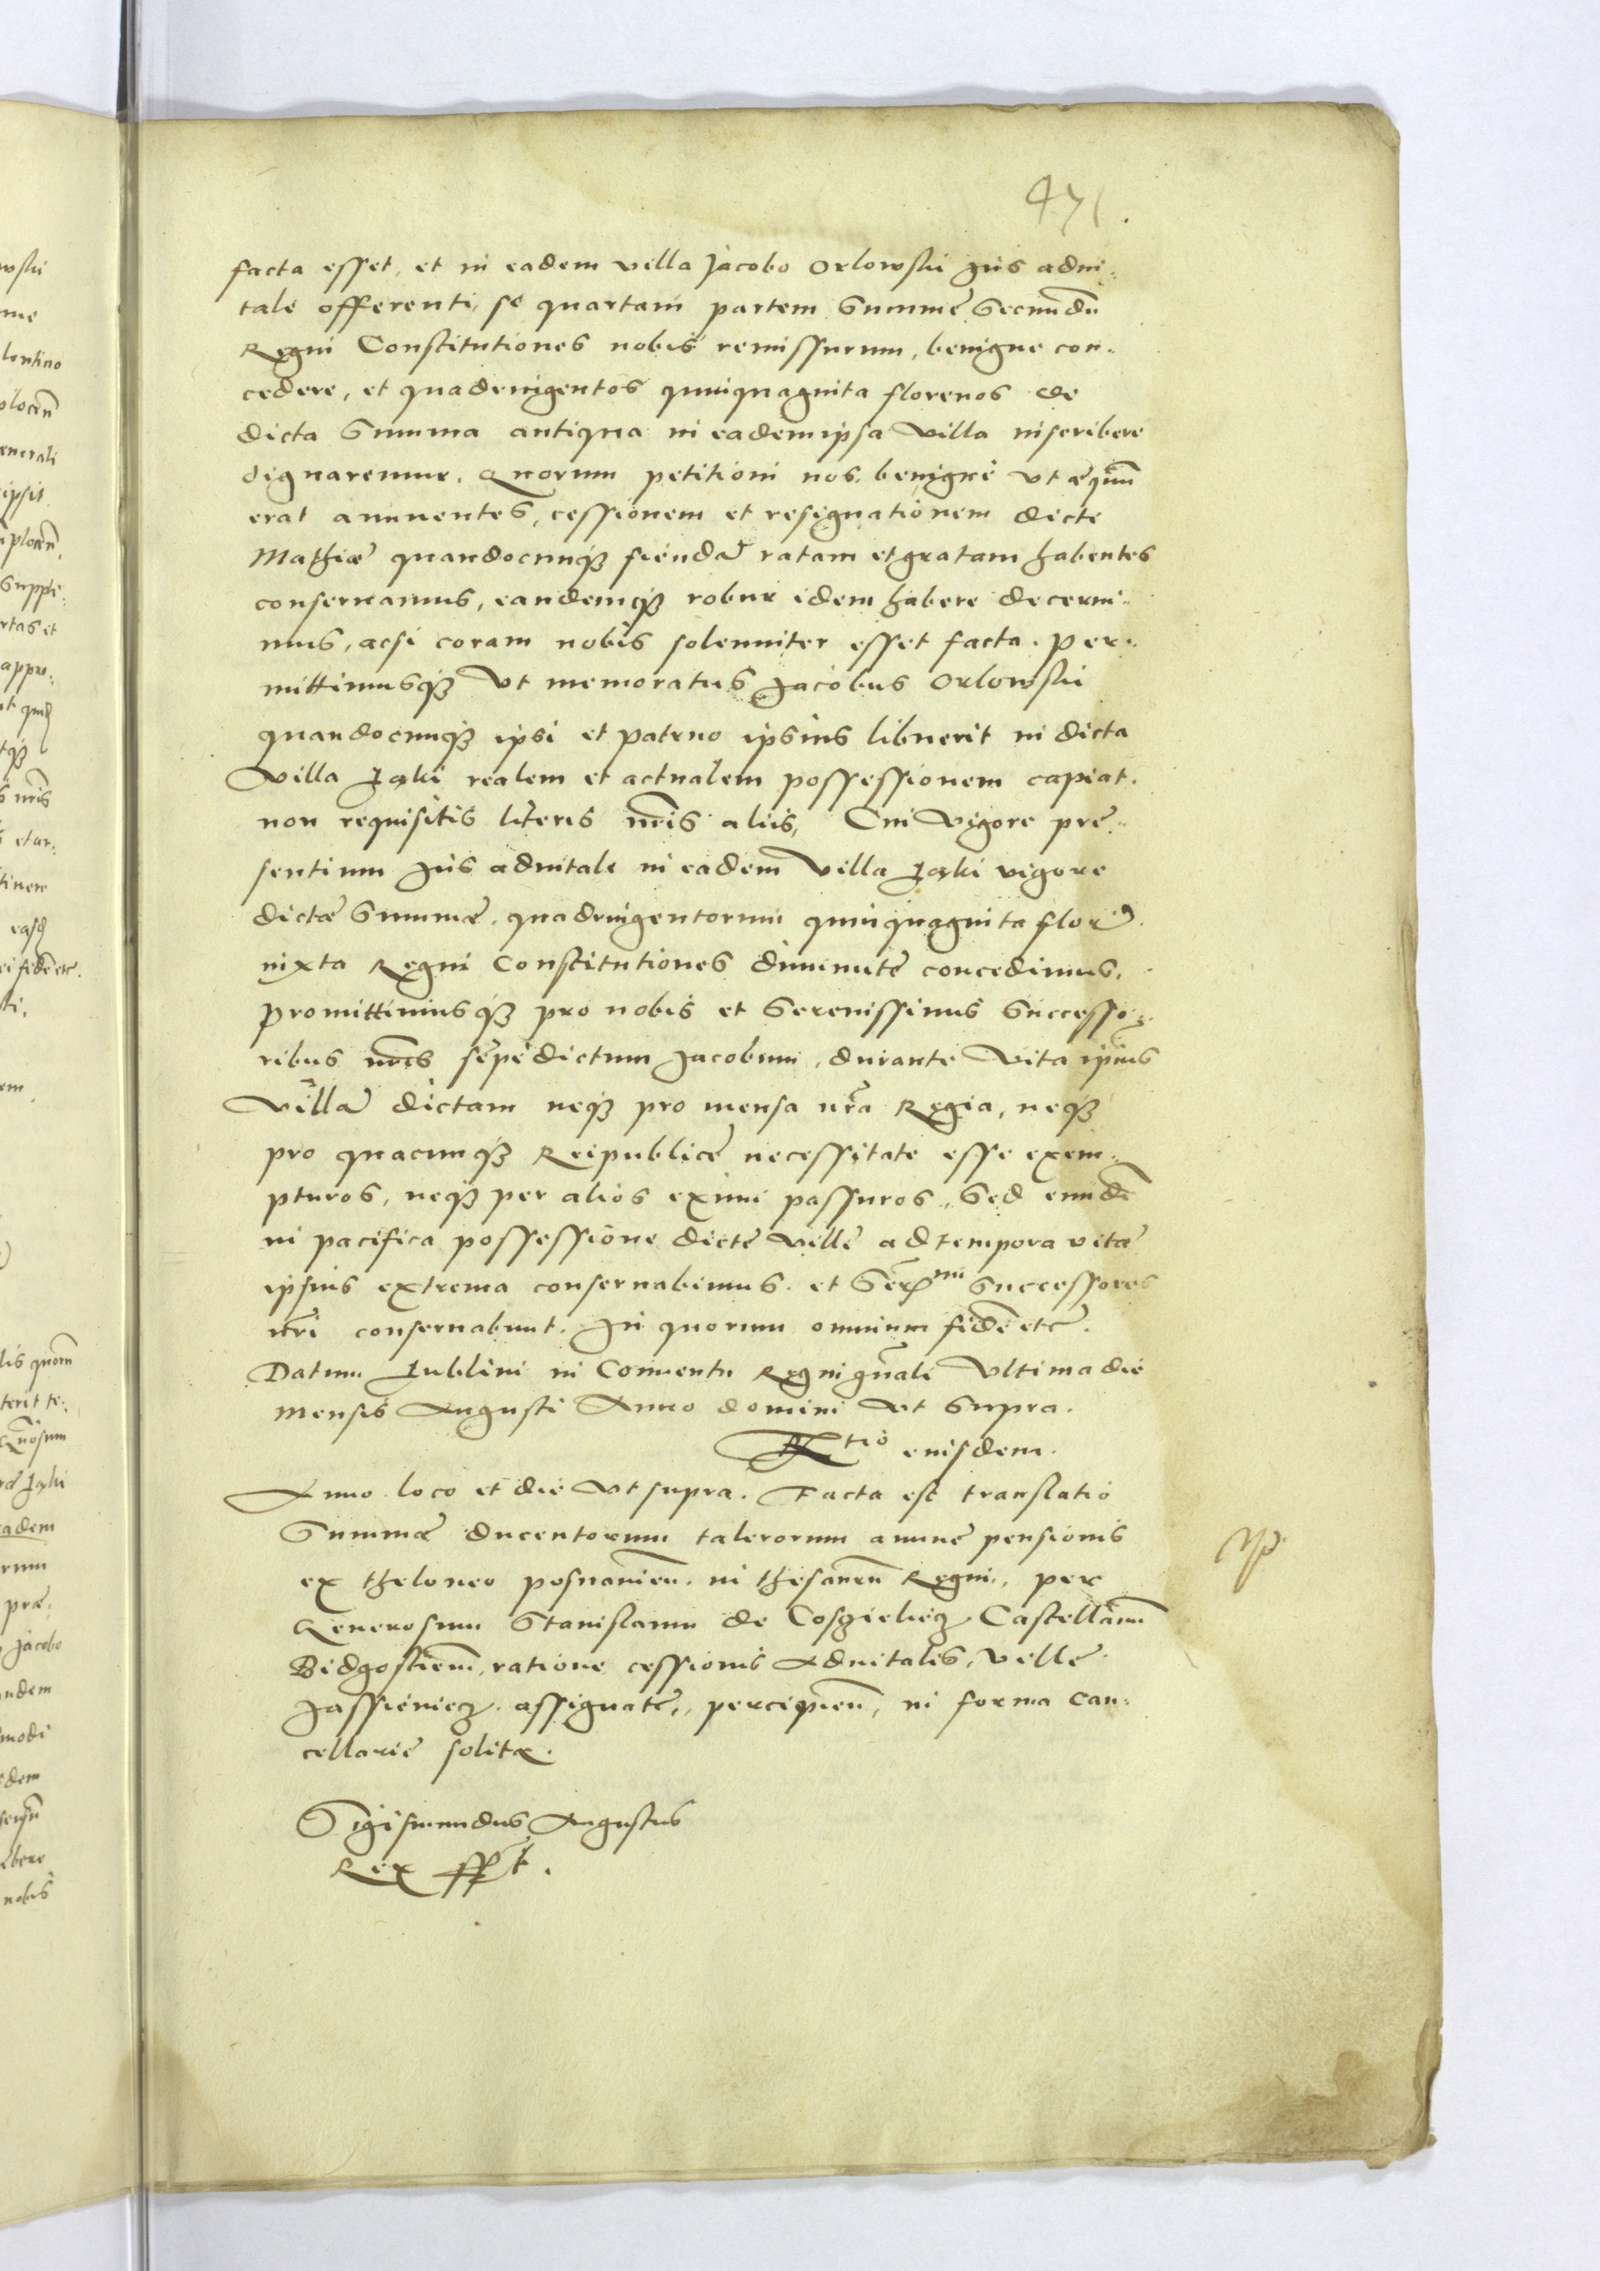 471.
facta esset, et in eadem villa Jacobo Orlowski jus advi-
tale offerenti, se quartam partem Summe Secundũ
Regni Constitutiones nobis remissurum, benigne con-
cedere, et quadringentos quinquaginta florenos de
dicta Summa antiqua in eademipsa Villa inscribere
dignaremur. Quorum petitioni nos benigne Ut æquũ
erat annuentes, cessionem et resignationem dicte
Mathiæ quandocunqꝫ fiendã ratam et gratam habentes
conservamus, eandemqꝫ robur idem habere decerni-
mus, acsi coram nobis solenniter esset facta. Per-
mittimusqꝫ Ut memoratus Jacobus Orlowski
quandocunqꝫ ipsi et patruo ipsius libuerit in dicta
Villa Łąki realem et actualem possessionem capiat.
non requisitis literis nr̃is aliis, Cui Vigore pre-
sentium Jus advitale in eadem Villa Łąki vigore
dictæ Summæ quadringentorum quinquaginta flor.
iuxta Regni Constitutiones diminute concedimus.
Promittimusqꝫ pro nobis et Serenissimis Successo-
ribus nr̃is sepedictum Jacobum, durante Vita ipsius
Villã dictam neqꝫ pro mensa nr̃a Regia, neqꝫ
pro quacunqꝫ Reipublice necessitate esse exem-
pturos, neqꝫ per alios eximi passuros, Sed eundẽ
in pacifica possessione dicte Ville ad tempora vitæ
ipsius extrema conservabimus. et Ser^mi Successores
nr̃i conservabunt. In quorum omnium fidẽ etc.
Datum Lublini in Conventu Regni gñali Ultima die
Mensis Augusti Anno domini Ut Supra.
R^tio eiusdem.
Anno loco et die Ut supra. Facta est translatio
Summæ ducentorum talerorum annue pensionis
ex theloneo posnanien̄. in thesaurũ Regni, per
Generosum Stanislaum de Coszielecz Castellanũ
Bidgostien̄, ratione cessionis Advitalis, Ville
Jassieniecz assignate, percipien̄, in forma Can-
cellarie solita.
Sigismundus Augustus
Rex sspt.